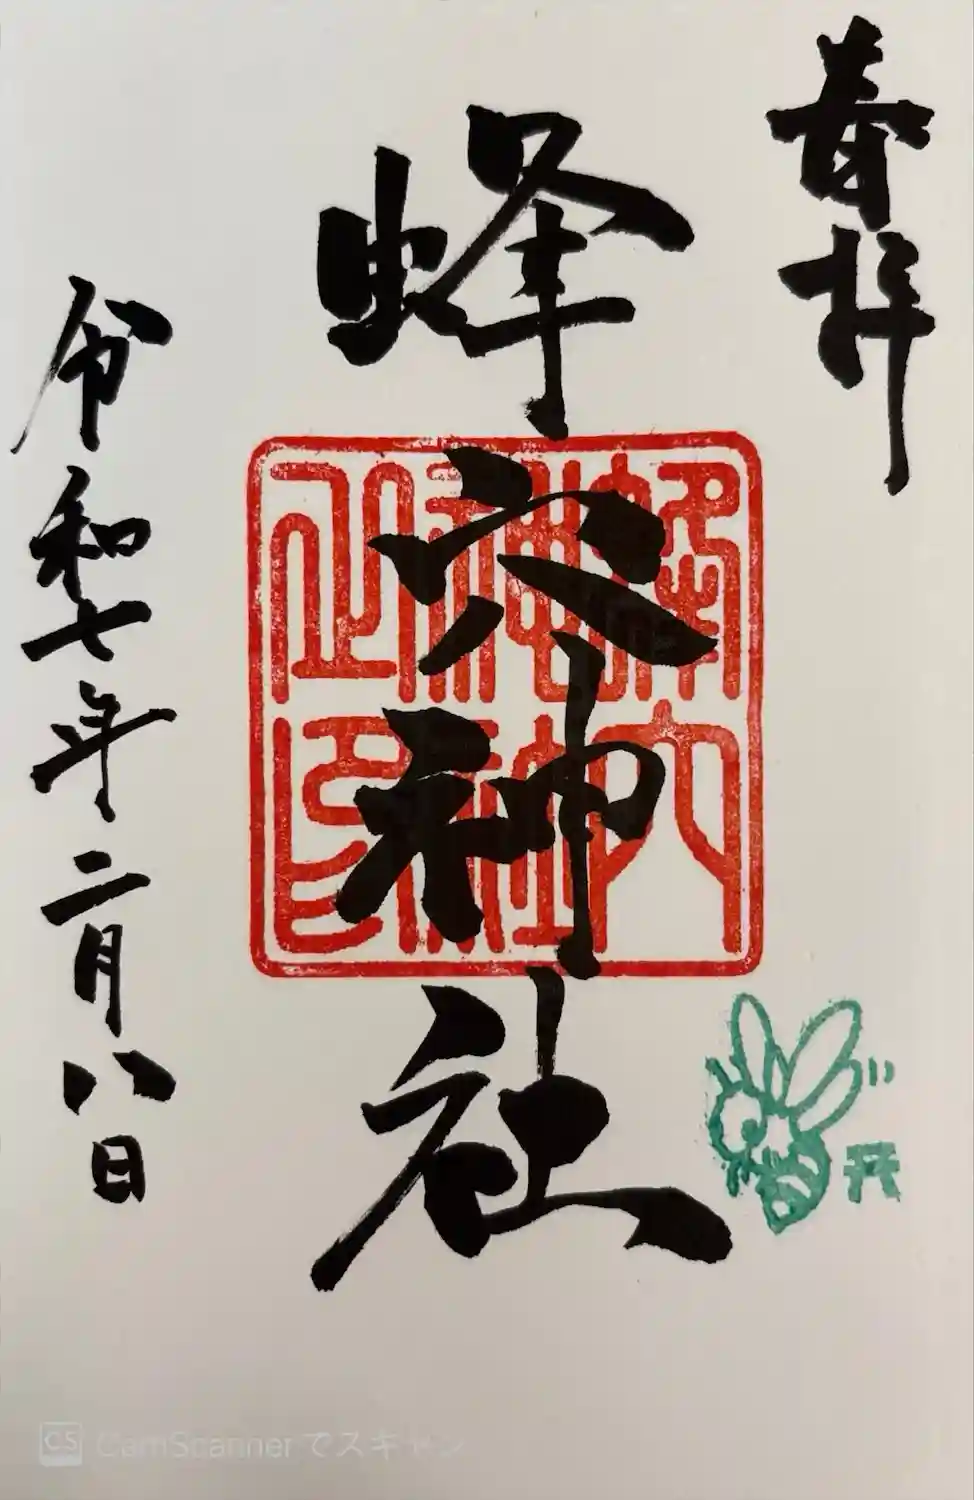 奉拝
蜂穴神社
令和七年二月八日
CS CamScannerでスキャン